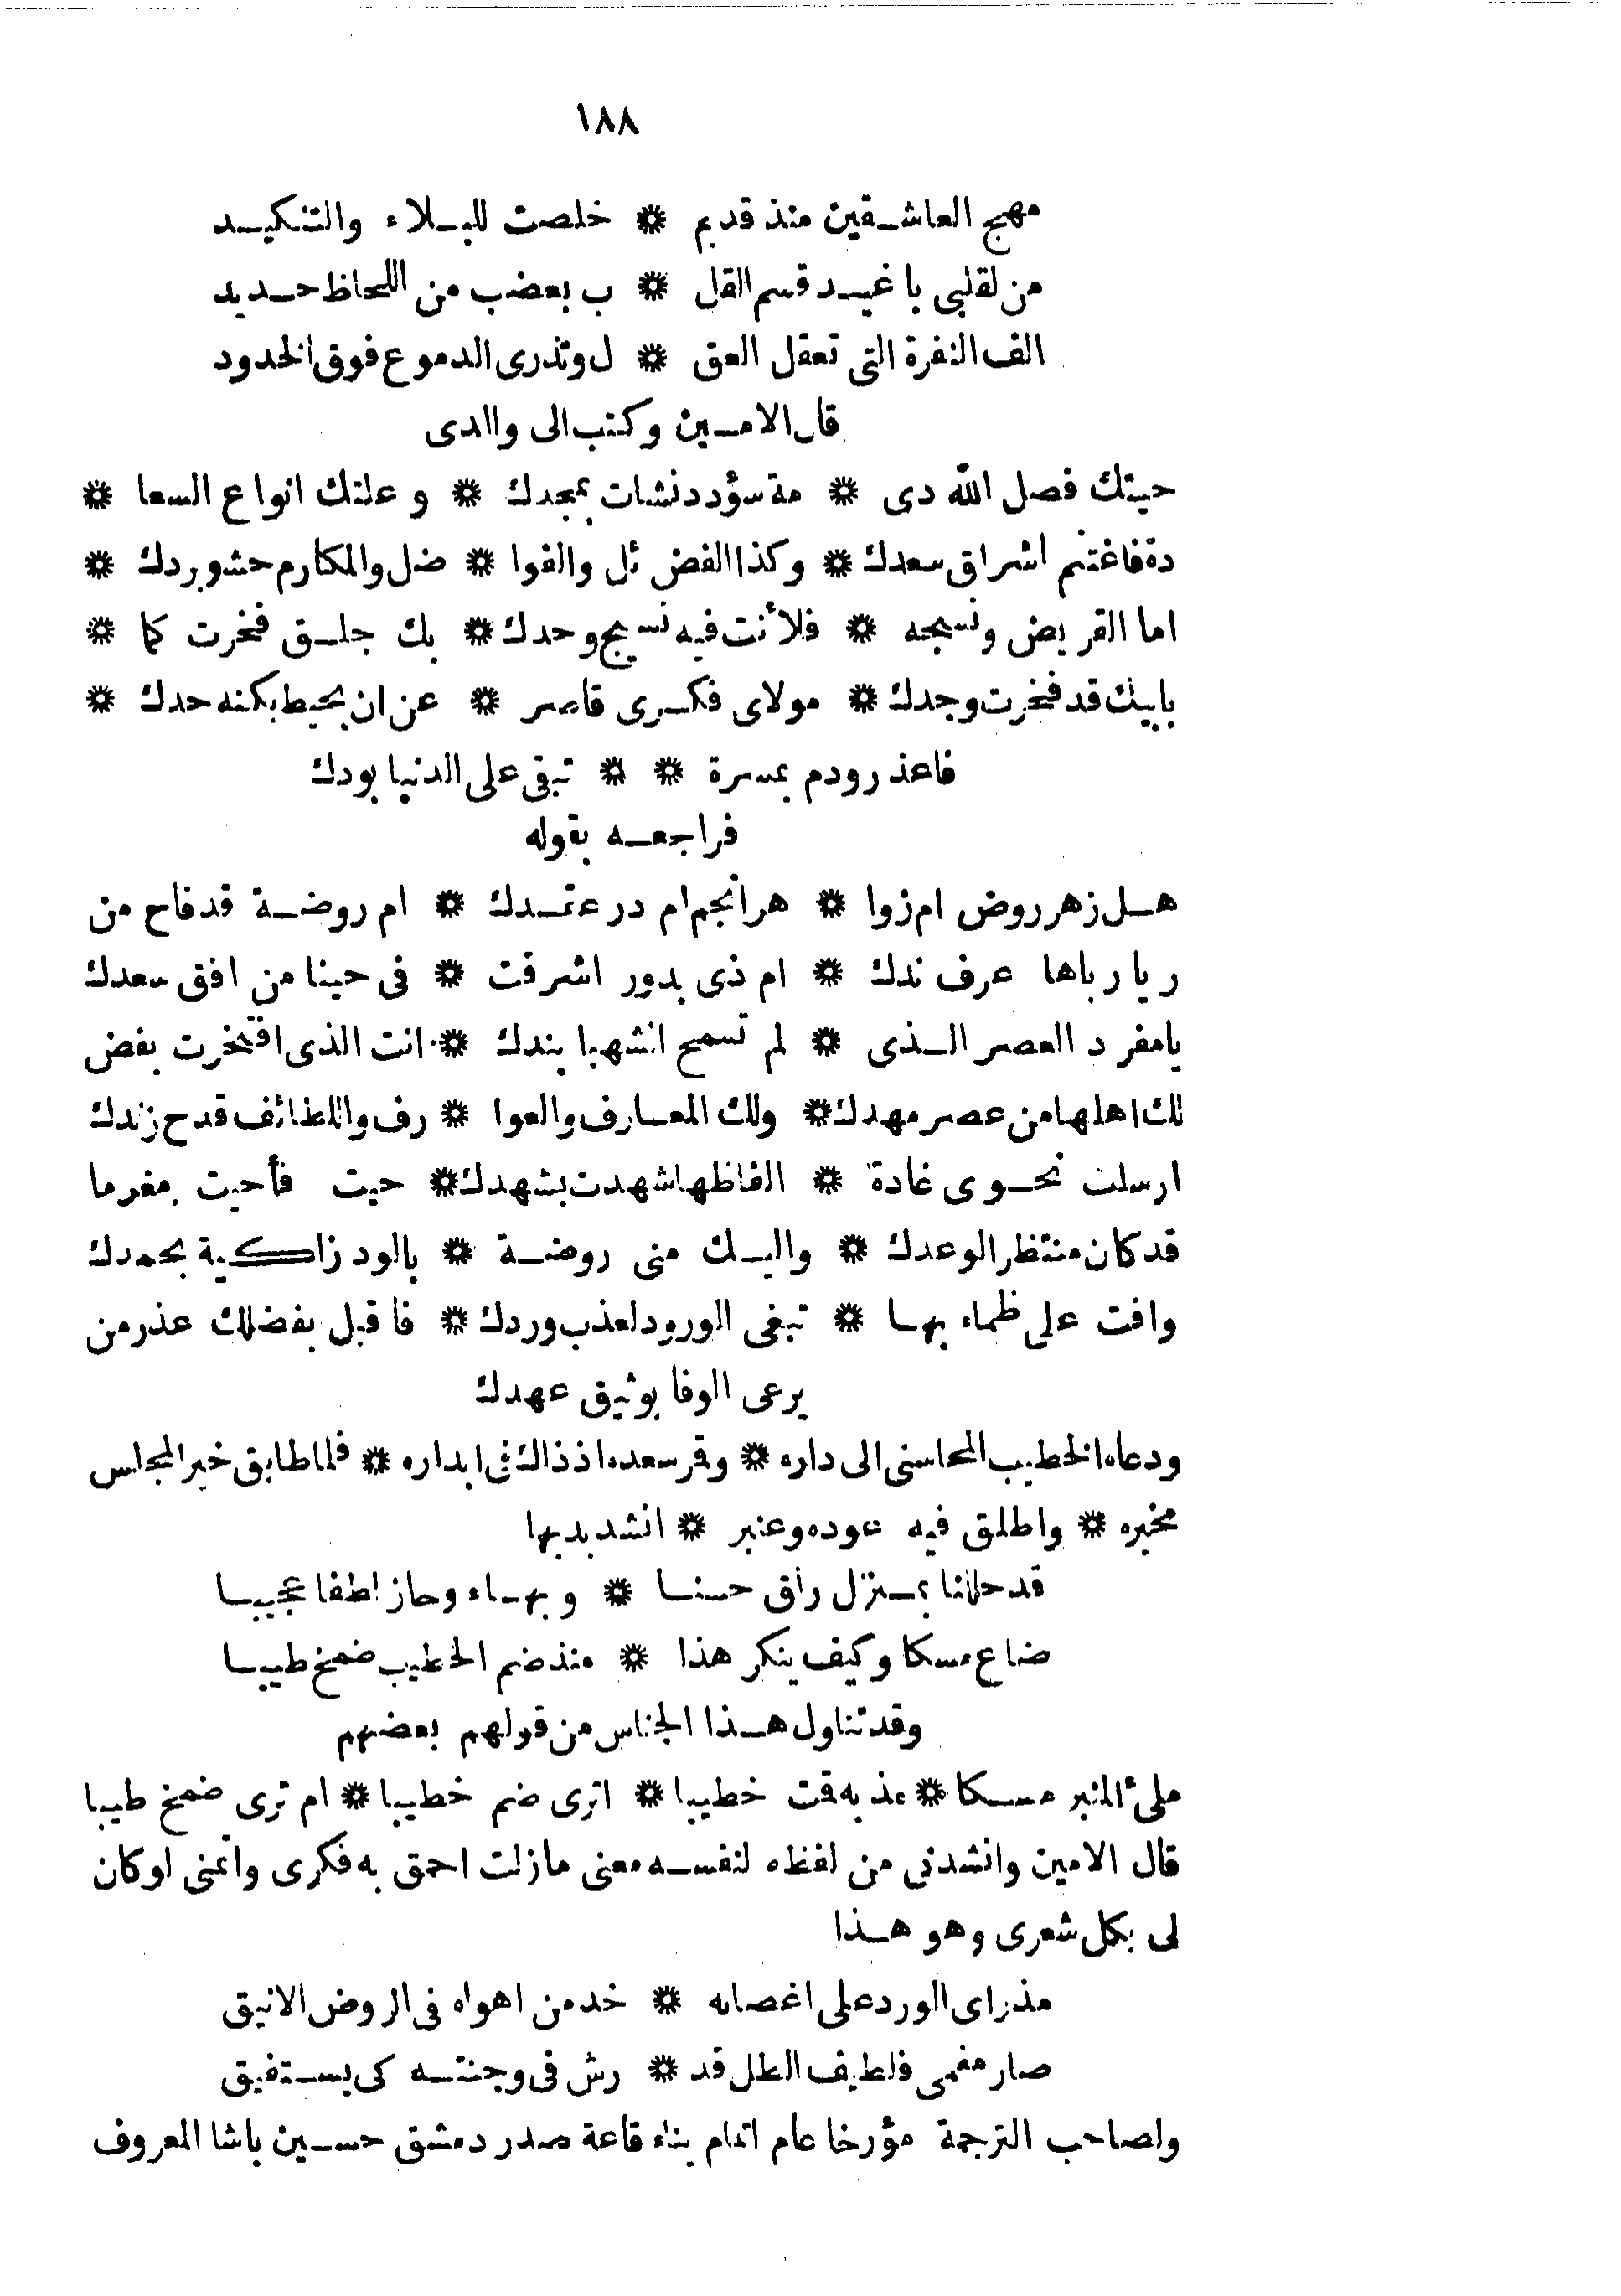 ١٨٨
مهج العاشقين منذ قديم ❊ خلصت للبلاء والتنكيد
من لقلبي باغيد قسم القل ❊ ب بعضب من اللحاظ حديد
الف النفرة التى تعقل العق ❊ ل وتذرى الدموع فوق الخدود
قال الامين وكتب الى والدى
حيتك فصل الله دى ❊ مة سؤدد نشات بمجدك ❊ وعلتك انواع السعا ❊
دة فاغتنم اشراق سعدك ❊ وكذا الفض ئل والفوا ❊ ضل والمكارم حشو بردك ❊
اما القريض ونسجه ❊ فلأنت فيه نسيج وحدك ❊ بك جلق فخرت كما ❊
بابيك قد فخرت وجدك ❊ مولاى فكرى قاصر ❊ عن ان يحيط بكنه حدك ❊
فاعذر ودم بمسرة ❊ ❊ تبقى على الدنيا بودك
فراجعه بقوله
هل زهر روض ام زوا ❊ هر انجم ام در عقدك ❊ ام روضة قد فاح من
ريا رباها عرف ندك ❊ ام ذى بدور اشرقت ❊ فى حينا من افق سعدك
يا مفرد العصر الذى ❊ لم تسمح الشهبا بندك ❊ انت الذى افتخرت بفض
لك اهلها من عصر مهدك ❊ ولك المعارف والعوا ❊ رف واللطائف قدح زندك
ارسلت نحوى غادة ❊ الفاظها شهدت بشهدك ❊ حيت فأحيت مغرما
قد كان منتظرا لوعدك ❊ واليك منى روضة ❊ بالود زاكية بحمدك
وافت على ظماء بها ❊ تبغى الورود لعذب وردك ❊ فاقبل بفضلك عذر من
يرعى الوفا بوثيق عهدك
ودعاه الخطيب المحاسنى الى داره ❊ وقر سعده اذ ذاك فى ابداره ❊ فلما طابق خبر المجلس
مخبره ❊ واطلق فيه عوده وعنبر ❊ انشد بديها
قد حللنا بمنزل راق حسنا ❊ وبهاء وحاز لطفا عجيبا
ضاع مسكا وكيف ينكر هذا ❊ منذ ضم الخطيب ضمخ طيبا
وقد تناول هذا الجناس من قولهم بعضهم
ملئ المنبر مسكا ❊ مذ به قت خطيبا ❊ اترى ضم خطيبا ❊ ام ترى ضمخ طيبا
قال الامين وانشدنى من لفظه لنفسه معنى مازلت احمق به فكرى واتمنى لو كان
لى بكل شعرى وهو هذا
مذ راى الورد على اغصانه ❊ خد من اهواه فى الروض الانيق
صار مغمى فلطيف الطل قد ❊ رش فى وجنته كى يستفيق
ولصاحب الترجمة مؤرخا عام اتمام بناء قاعة صدر دمشق حسين باشا المعروف